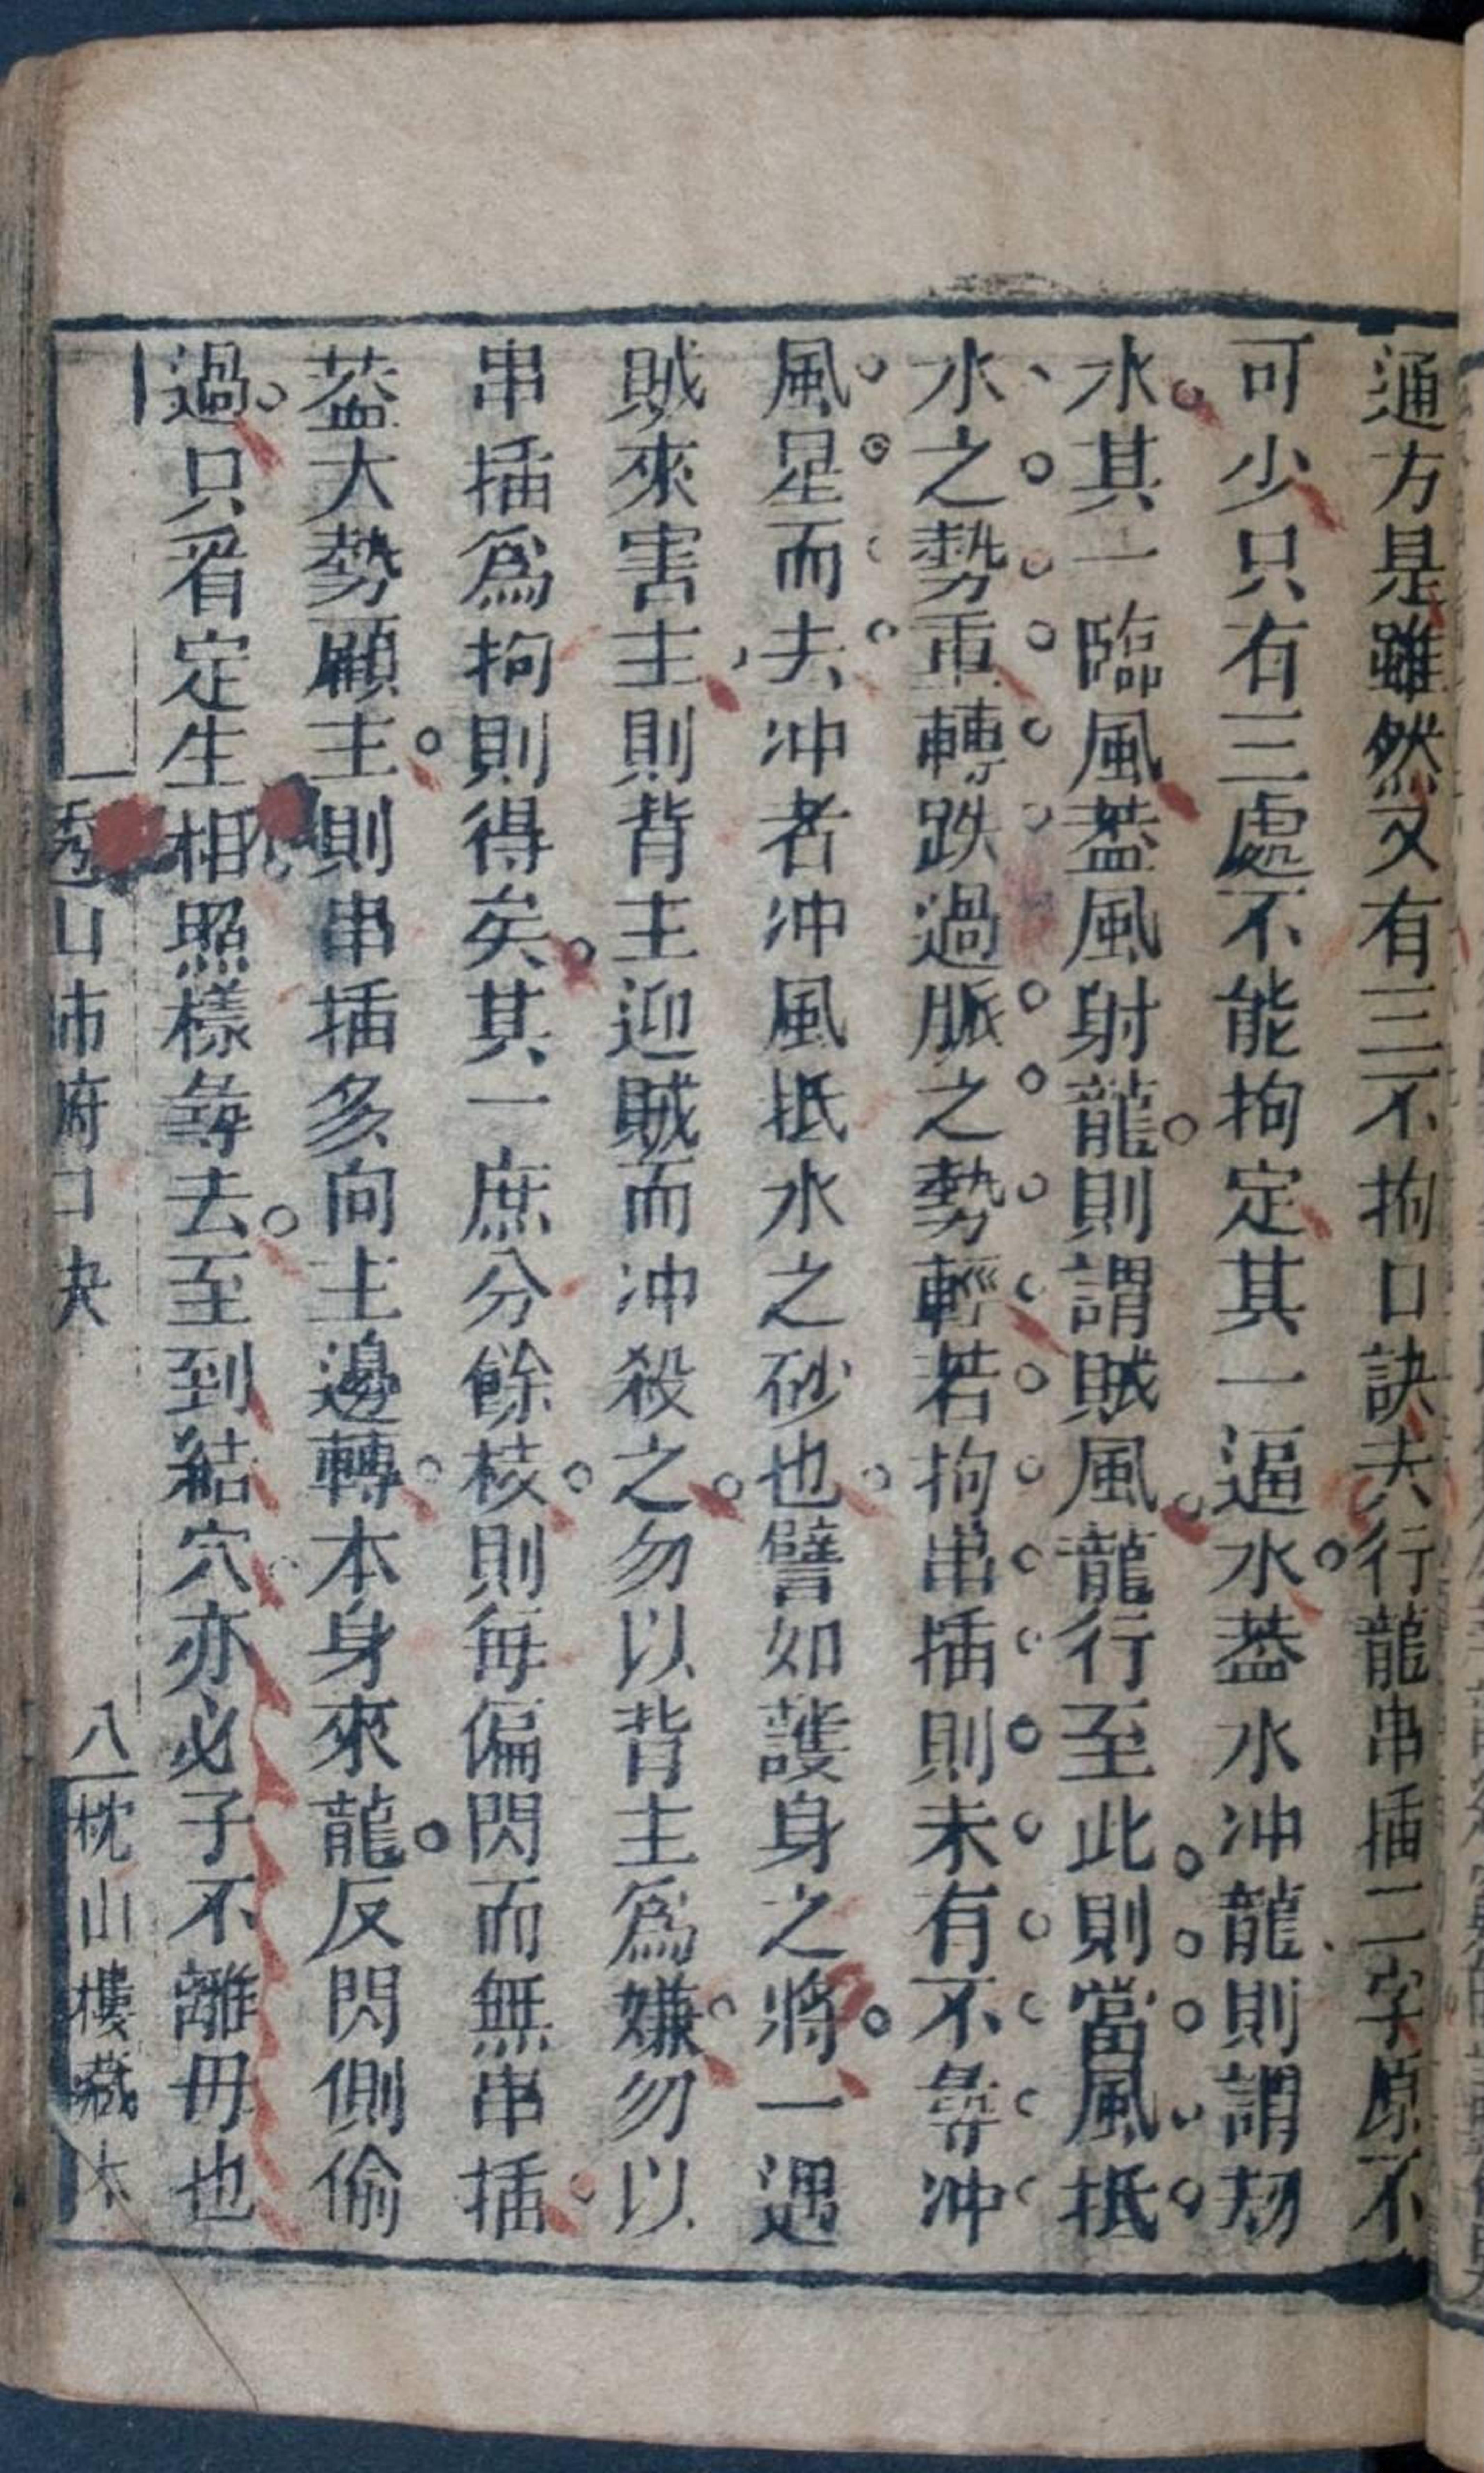 通方是雖然又有三不拘口訣夫行龍串插二字原不
可少只有三處不能拘定其一逼水葢水冲龍則謂刼
水其一臨風葢風射龍則謂賊風龍行至此則當風抵
水之勢重轉跌過脈之勢輕若拘串插則未有不尋冲
風星而去冲者冲風抵水之砂也譬如護身之將一遇
賊來害主則背主迎賊而冲殺之勿以背主爲嫌勿以
串插爲拘則得矣其一庶分餘枝則每偏閃而無串插
葢大勢顧主則串插多向主邊轉本身來龍反閃側偷
過只看定生相照樣尋去至到結穴亦必子不離毋也
山布府口夬
八
枕山樓藏本